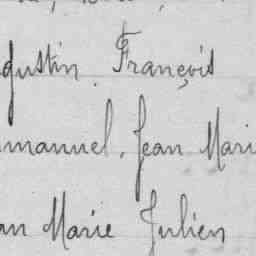 gustin François
mmanuel, Jean Mari
an Marie Julien